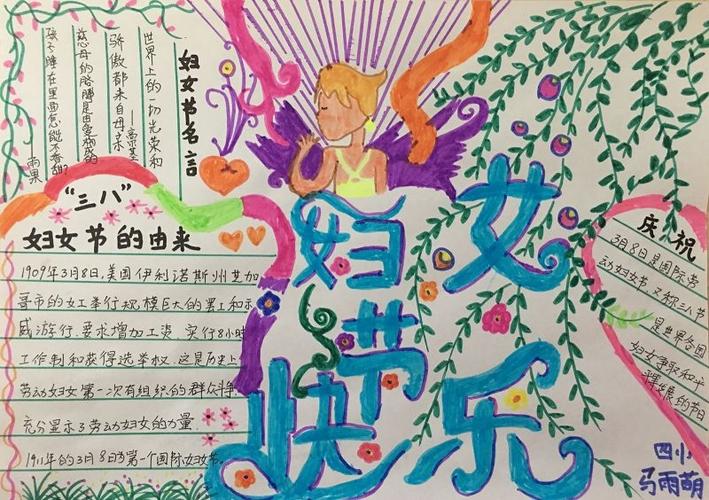 妇女节名言
世界上的一切光荣和
骄傲都来自母亲
——高尔基
慈母的胳膊是由爱构成的
孩子睡在里面怎能不香甜?
——雨果
“三八”
妇女节的由来
1909年3月8日,美国伊利诺斯州芝加
哥市的女工举行规模巨大的罢工和示
威游行.要求增加工资 实行8小时
工作制和获得选举权.这是历史上
劳动妇女第一次有组织的群众斗争
充分显示了劳动妇女的力量
1911年的3月8日为第一个国际妇女节.
妇女
节
快乐
庆祝
3月8日是国际劳
动妇女节,又称三八节
是世界各国
妇女争取和平
发展的节日
四小
马雨萌